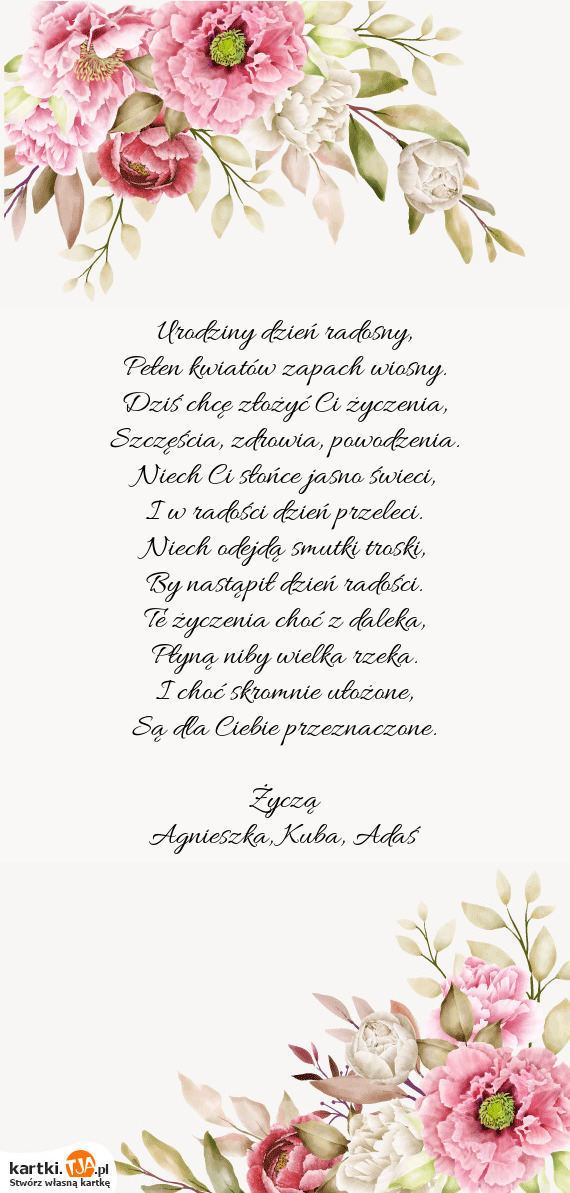 Urodziny dzień radosny,
Pełen kwiatów zapach wiosny.
Dziś chcę złożyć Ci życzenia,
Szczęścia, zdrowia, powodzenia.
Niech Ci słońce jasno świeci,
I w radości dzień przeleci.
Niech odejdą smutki troski,
By nastąpił dzień radości.
Te życzenia choć z daleka,
Płyną niby wielka rzeka.
I choć skromnie ułożone,
Są dla Ciebie przeznaczone.
Życzą
Agnieszka, Kuba, Adaś
kartki.TJA.pl
Stwórz własną kartkę